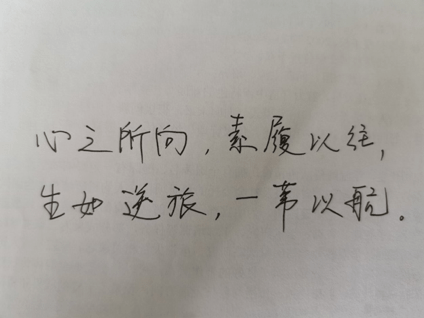 心之所向，素履以往，
生如逆旅，一苇以航。